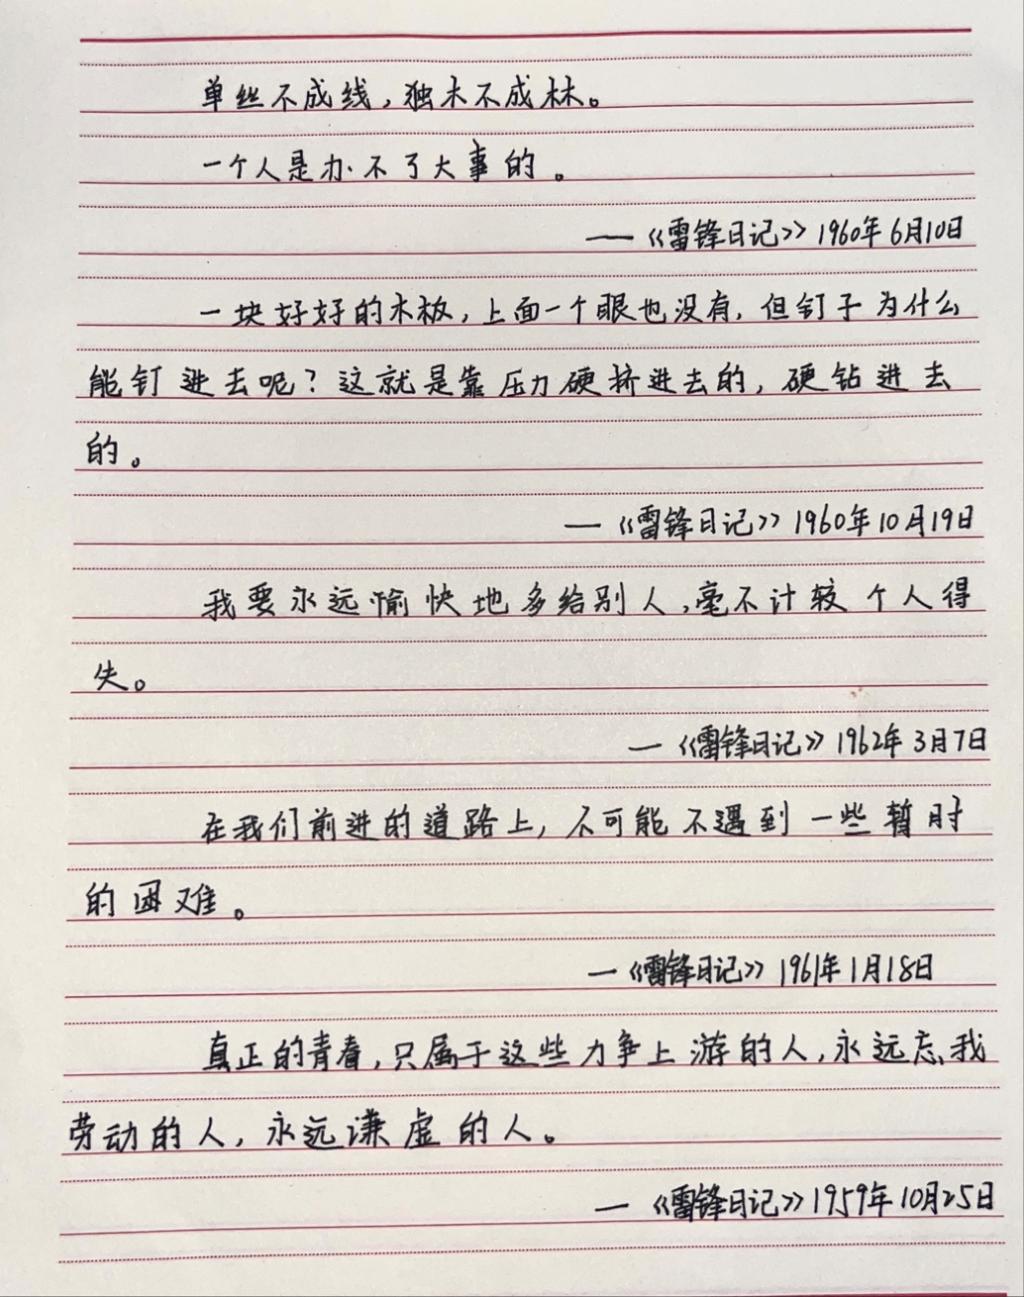 单丝不成线，独木不成林。
一个人是办不了大事的。
——《雷锋日记》1960年6月10日
一块好好的木板，上面一个眼也没有，但钉子为什么
能钉进去呢？这就是靠压力硬挤进去的，硬钻进去
的。
—《雷锋日记》1960年10月19日
我要永远愉快地多给别人，毫不计较个人得
失。
—《雷锋日记》1962年3月7日
在我们前进的道路上，不可能不遇到一些暂时
的困难。
—《雷锋日记》1961年1月18日
真正的青春，只属于这些力争上游的人，永远忘我
劳动的人，永远谦虚的人。
—《雷锋日记》1959年10月25日